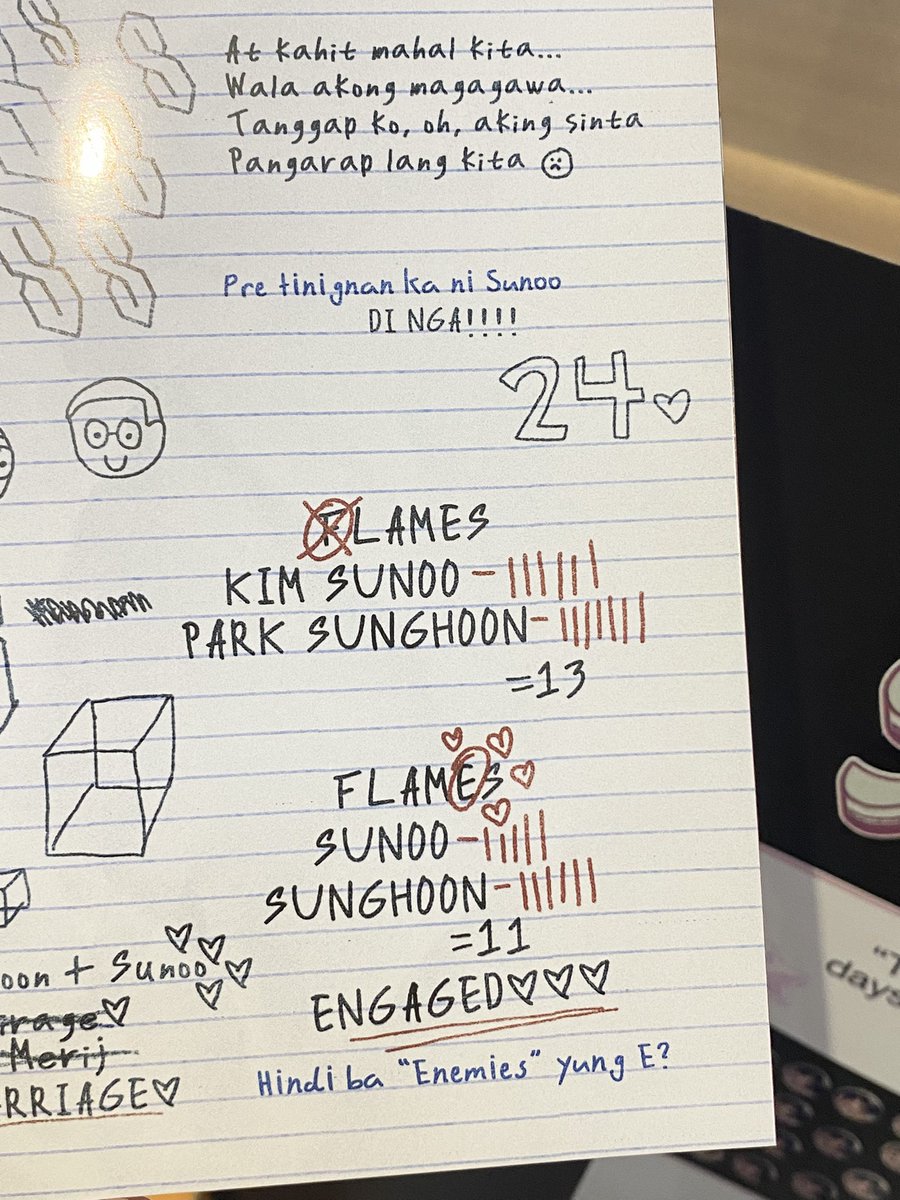 At kahit mahal kita...
Wala akong magagawa...
Tanggap ko, oh, aking sinta
Pangarap lang kita
Pre tinignan ka ni Sunoo
DI NGA!!!!
24
FLAMES
KIM SUNOO -
PARK SUNGHOON -
=13
FLAMES
SUNOO -
SUNGHOON -
=11
ENGAGED
Hindi ba "Enemies" yung E?
oon + Sunoo
irage
Merij
RRIAGE
days